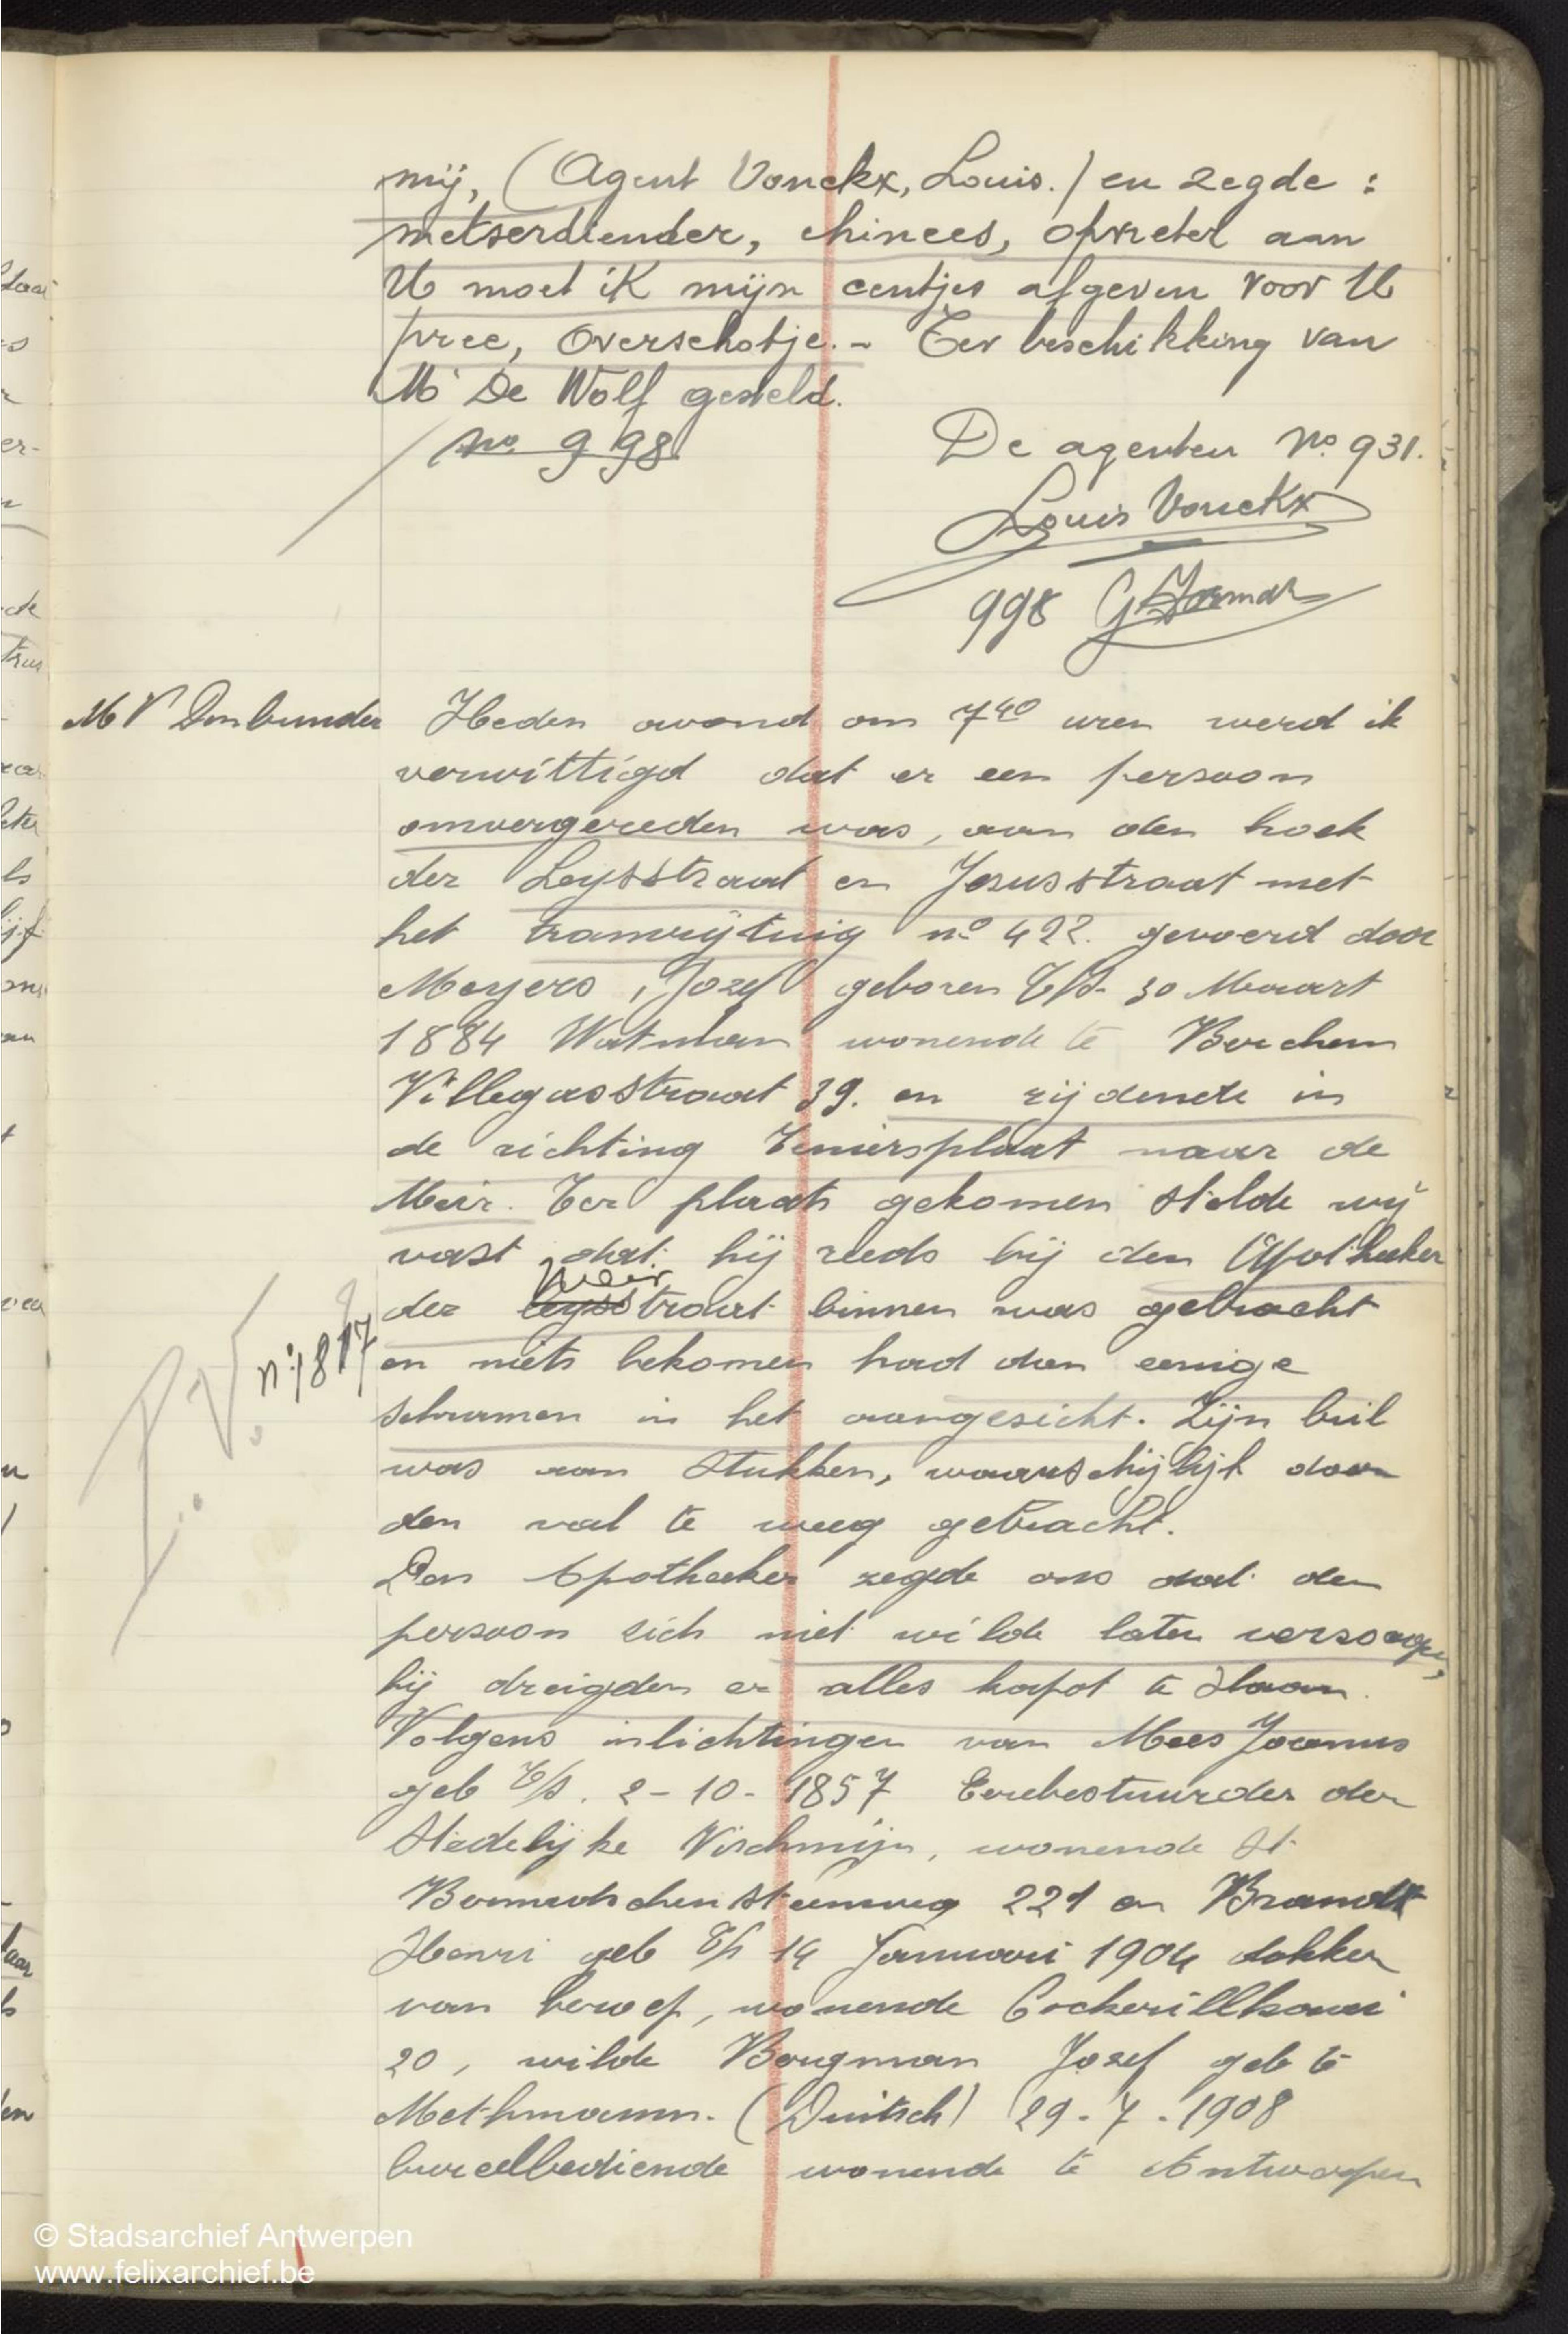 mij, (Agent Vonckx, Louis.) en zegde :
metserdiender, chinees, opvreter aan
U moet ik mijn centjes afgeven voor U
pree, overschotje. - Ter beschikking van
Mr De Wolf gesteld.
no 998
De agenten No 931.
Louis Vonckx
998 G
Mr Denbunder
Heden avond om 7 40 uren werd ik
verwittigd dat er een persoon
omvergereden was, aan den hoek
der Leysstraat en Jesusstraat met
het tramrijtuig no 422. gevoerd door
Meyers, Jozef geboren T/S. 30 Maart
1884 Watman wonende te Berchem
Villegasstraat 39. en rijdende in
de richting Teniersplaat naar de
Meir. Ter plaats gekomen stelde wij
vast dat hij reeds bij den Apotheeker
Meir
der leysstraat binnen was gebracht
n° 1817
P.V.
en niets bekomen had dan eenige
schramen in het aangezicht. Zijn bril
was aan stukken, waarschijlijk door
den val te weeg gebracht.
Den Apotheeker zegde ons dat den
persoon zich niet wilde laten verzorgen,
hij dreigden er alles kapot te slaan.
Volgens inlichtingen van Mees Joannes
geb T/S. 2-10-1857 Eerebestuurder der
Stedelijke Vischmijn, wonende St
steenweg 221 en Brandt
Henri geb T/S 14 Januari 1904 dokker
van beroep, wonende Cockerillkaai
20, wilde Bergman Jozef geb te
Methmann. (Duitsch) 29-7-1908
bureelbediende wonende te Antwerpen
© Stadsarchief Antwerpen
www.felixarchief.be